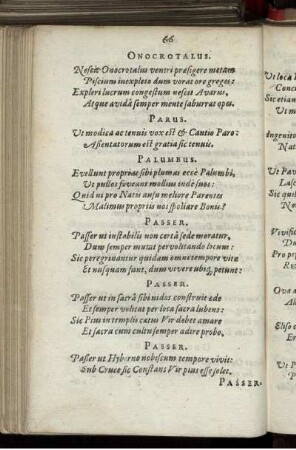 66
ONOCROTALUS.
Nescit Onocrotalus ventri præfigere metam
Piscium inexpleto dum vorat ore greges:
Expleri lucrum congestum nescit Avarus,
Atque avidâ semper mente saburrat opes.
PARUS.
Ut modica ac tenuis vox est & Cantio Paro:
Assentatorum est gratia sic tenuis.
PALUMBUS.
Evellunt propriae sibi plumas ecce Palumbi,
Ut pullos foveant molliùs inde suos:
Quid ni pro Natis ausu meliore Parentes
Malimus propriis nos spoliare Bonis?
PASSER.
Passer ut instabilis non certâ sede moratur,
Dum semper mutat pervolitando locum:
Sic peregrinantur quidam omni tempore vitæ
Et nusquam sunt, dum vivere ubiq; petunt:
PASSER.
Passer ut in sacrâ sibi nidos construit æde
Et semper volitat per loca sacra lubens:
Sic Pius in templis cœtus Vir debet amare
Et sacra cum cultu semper adire probo.
PASSER.
Passer ut Hyberno nobiscum tempore vivit:
Sub Cruce sic Constans Vir pius esse solet.
PASSER.
Ut loca
Conci
Sic etian
Ut
Ingenio
N
Ut Pav
Lasc
Sic quid
N
Vivific
D
Pro pr
E
Ova
A
Eliso
E
A